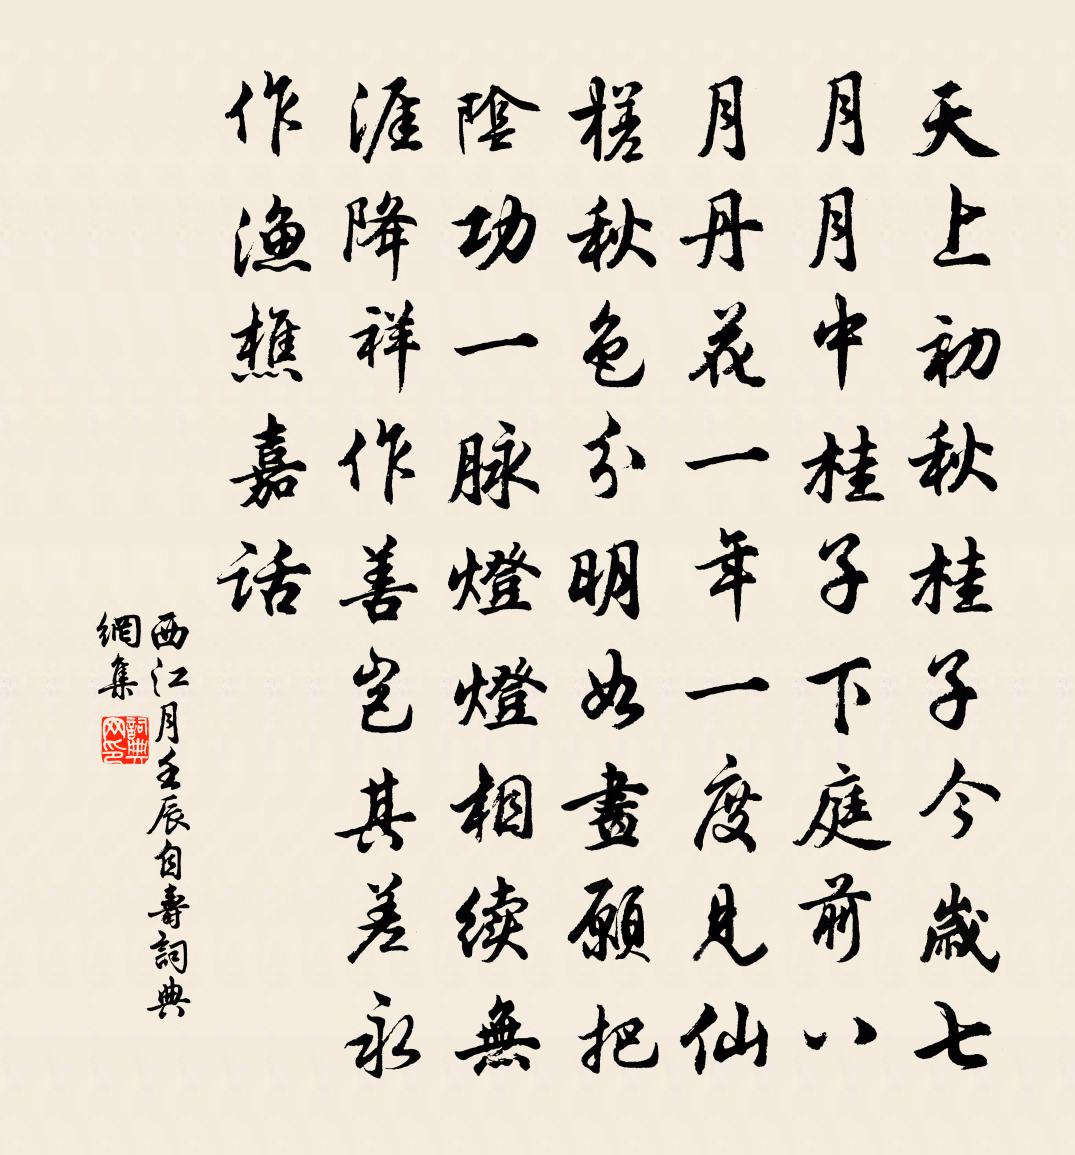 天上初秋桂子今歲七
月月中桂子下庭前八
月丹花一年一度見仙
槎秋色分明如畫願把
陰功一脉燈燈相續無
涯降祥作善豈其差永
作漁樵嘉話
西江月壬辰自壽詞典
網集
詞典网印